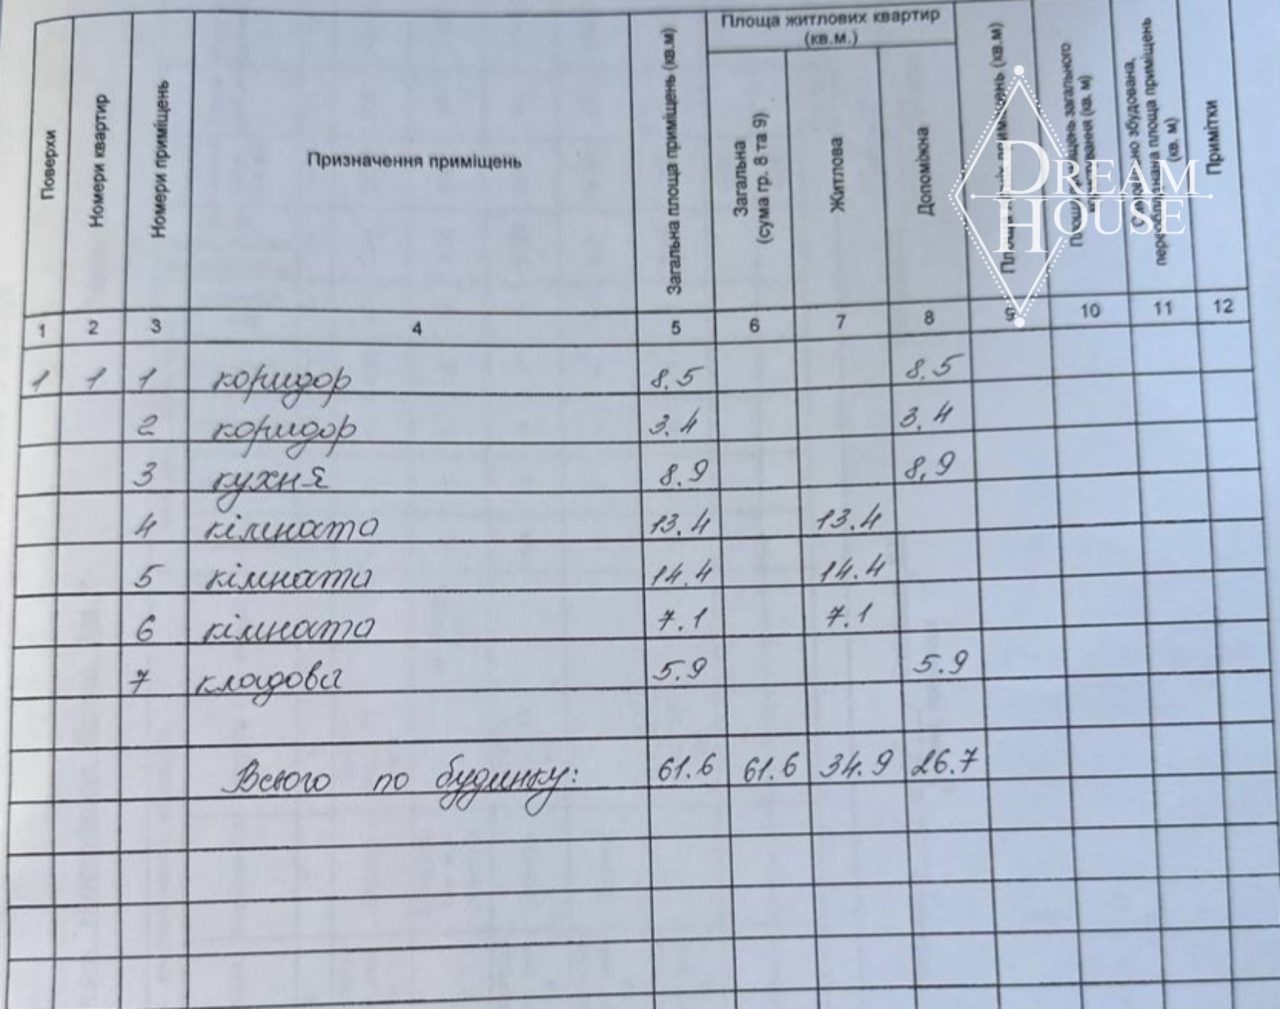 Поверхи
Номери квартир
Номери приміщень
Призначення приміщень
Загальна площа приміщень (кв.м)
Площа житлових квартир
(кв.м.)
Загальна
(сума гр. 8 та 9)
Житлова
Допоміжна
Площа приміщень (кв.м)
загального
(кв. м)
збудована,
площа приміщень
(кв. м)
Примітки
DREAM
HOUSE
1 2 3 4 5 6 7 8 9 10 11 12
1 1 1 коридор 8.5 8.5
2 коридор 3.4 3.4
3 кухня 8.9 8,9
4 кімната 13.4 13.4
5 кімната 14.4 14.4
6 кімната 7.1 7.1
7 кладова 5.9 5.9
Всього по будинку: 61.6 61.6 34.9 26.7